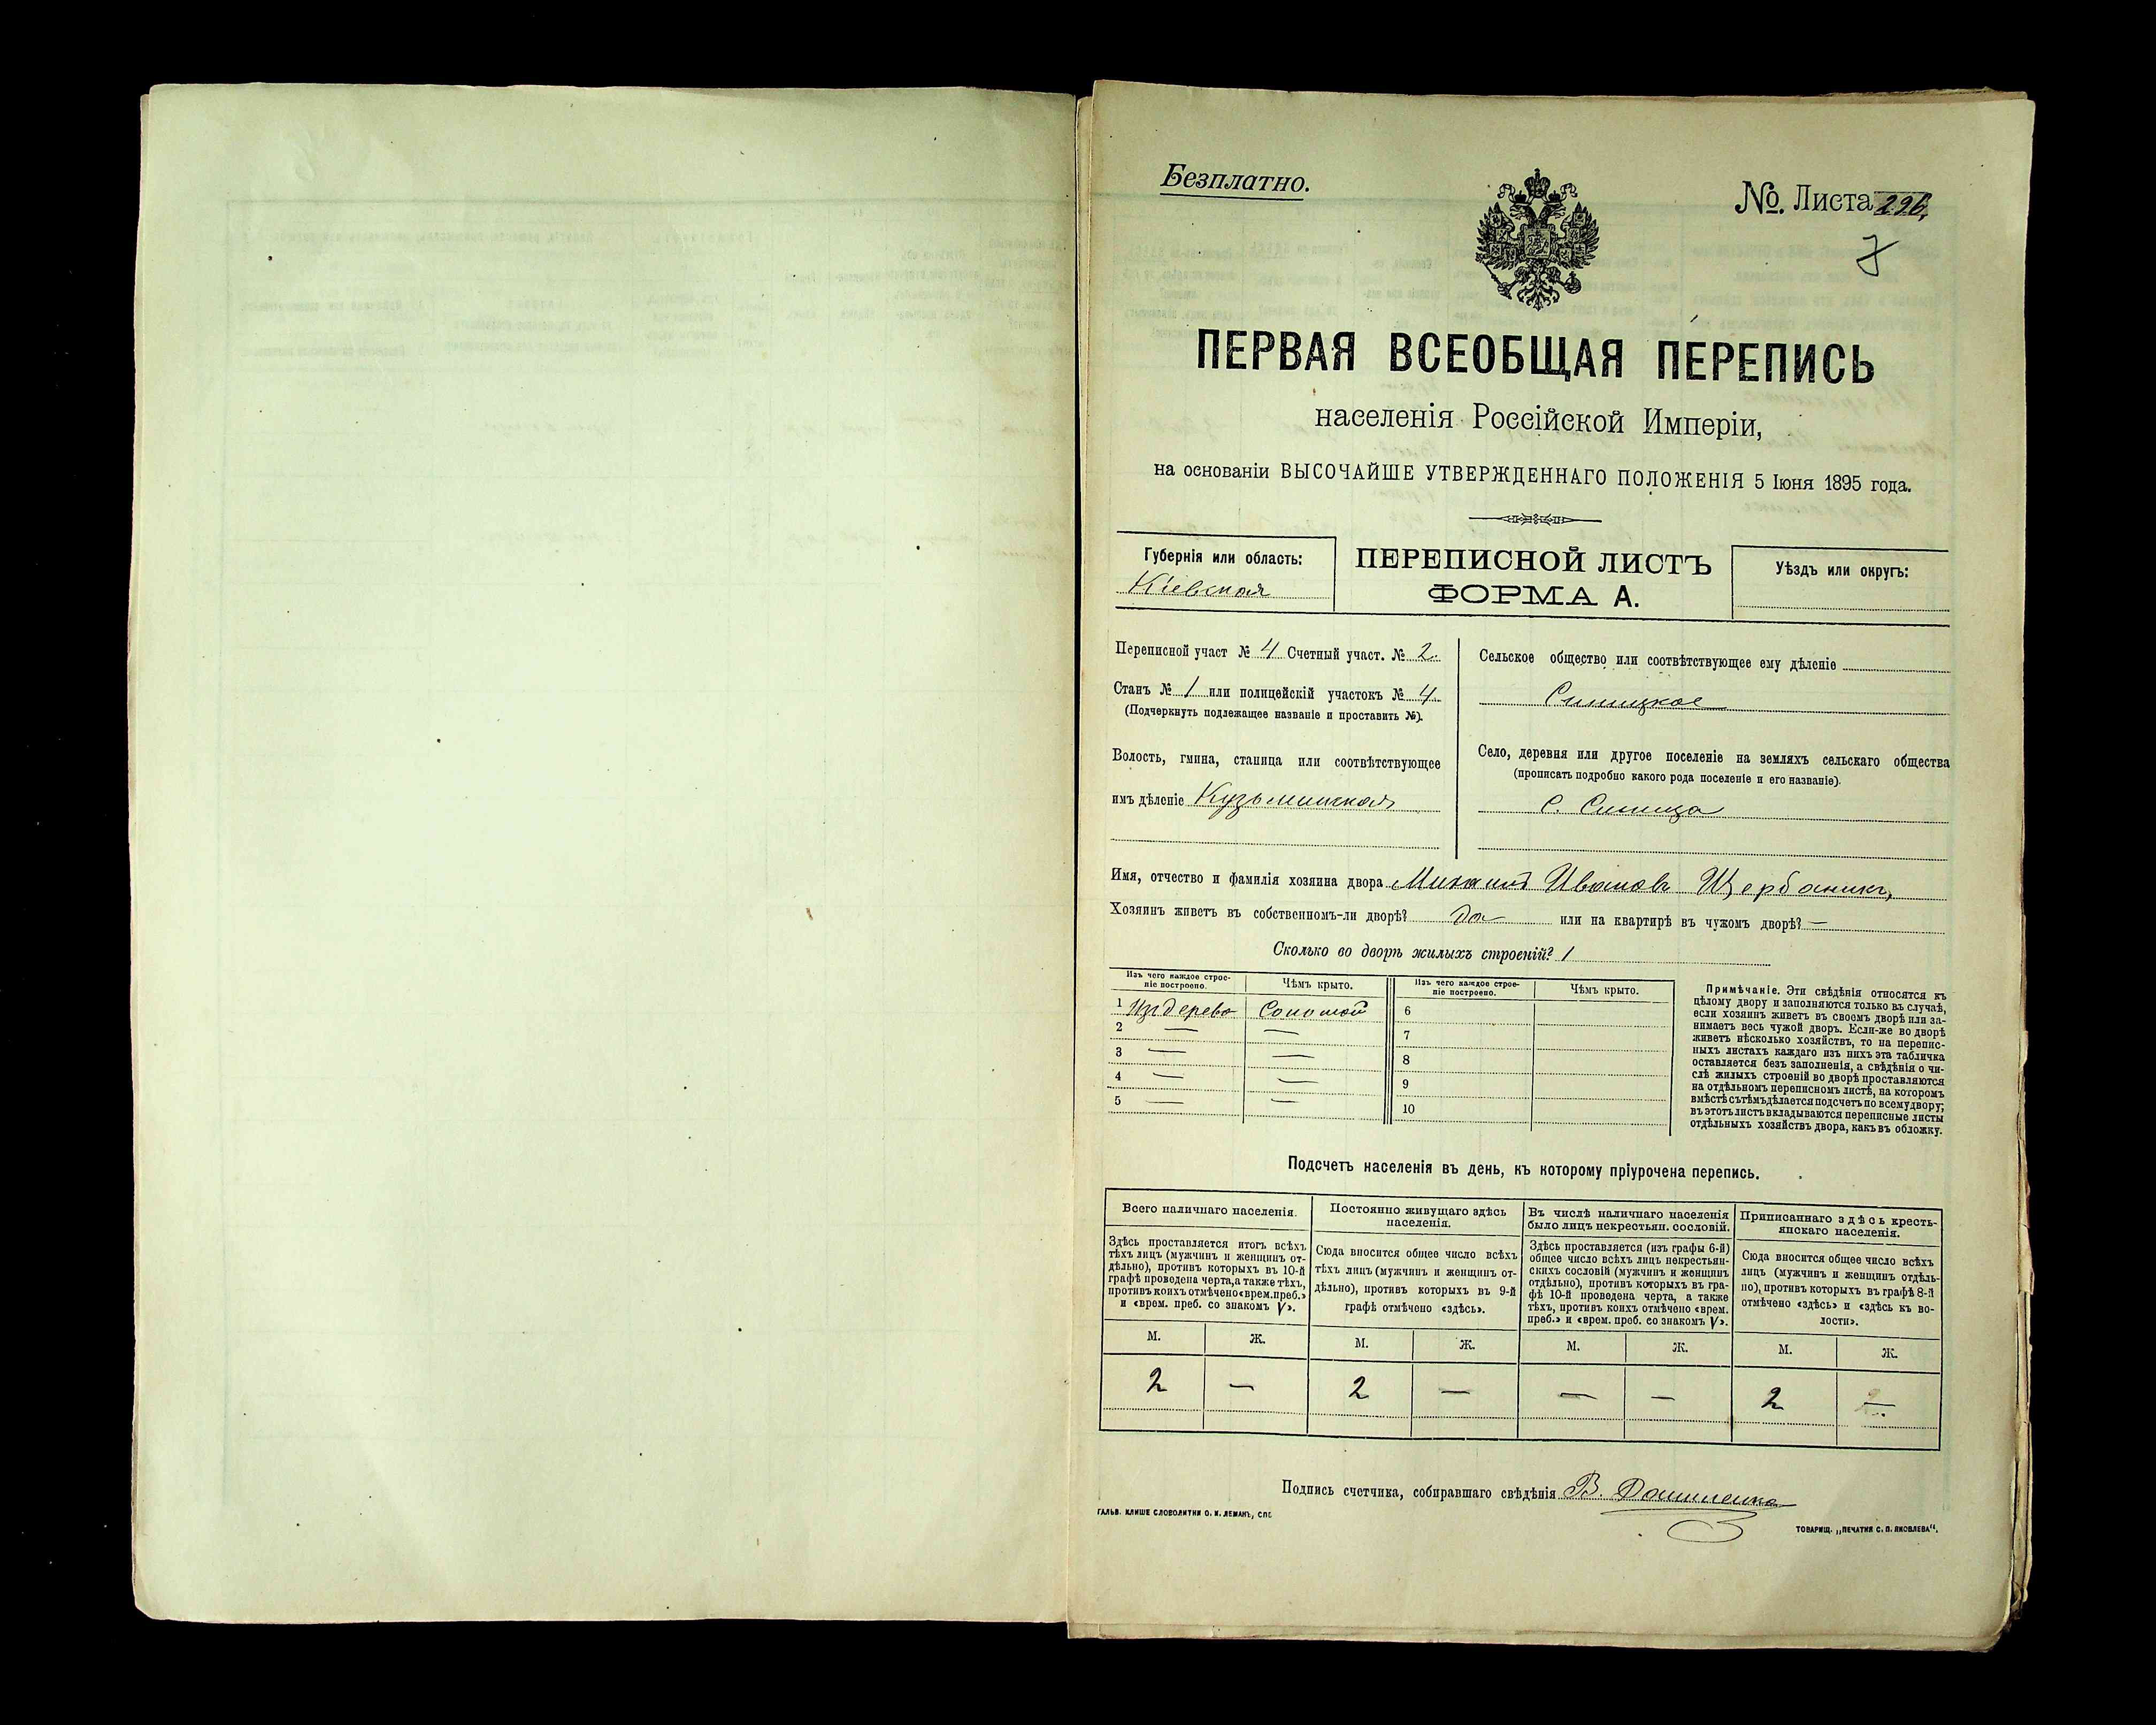 Безплатно.
No. Листа 296,
ПЕРВАЯ ВСЕОБЩАЯ ПЕРЕПИСЬ
населенія Россійской Имперіи,
на основаніи ВЫСОЧАЙШЕ УТВЕРЖДЕННАГО ПОЛОЖЕНІЯ 5 Іюня 1895 года.
Губернія или область:
Кіевская
ПЕРЕПИСНОЙ ЛИСТЪ
ФОРМА А.
Уѣздъ или округъ:
Переписной участ № 4 Счетный участ. № 2.
Станъ № 1 или полицейскій участокъ № 4
(Подчеркнуть подлежащее названіе и проставить №).
Волость, гмина, станица или соотвѣтствующее
имъ дѣленіе Кузьминская
Сельское общество или соотвѣтствующее ему дѣленіе
Синицкое
Село, деревня или другое поселеніе на земляхъ сельскаго общества
(прописать подробно какого рода поселеніе и его названіе).
С. Синица
Имя, отчество и фамилія хозяина двора Михаил Иванов Щербанюк,
Хозяинъ живетъ въ собственномъ-ли дворѣ? Да или на квартирѣ въ чужомъ дворѣ? —
Сколько во дворѣ жилыхъ строеній? 1
Изъ чего каждое строе-
ніе построено.
Чѣмъ крыто.
Изъ чего каждое строе-
ніе построено.
Чѣмъ крыто.
1 Изъ дерева Соломой 6
2 — — 7
3 — — 8
4 — — 9
5 — — 10
Примѣчаніе. Эти свѣдѣнія относятся къ
цѣлому двору и заполняются только въ случаѣ,
если хозяинъ живетъ въ своемъ дворѣ или за-
нимаетъ весь чужой дворъ. Если-же во дворѣ
живетъ нѣсколько хозяйствъ, то на перепис-
ныхъ листахъ каждаго изъ нихъ эта табличка
оставляется безъ заполненія, а свѣдѣнія о чи-
слѣ жилыхъ строеній во дворѣ проставляются
на отдѣльномъ переписномъ листѣ, на которомъ
вмѣстѣ съ тѣмъ дѣлается подсчетъ по всему двору;
въ этотъ листъ вкладываются переписные листы
отдѣльныхъ хозяйствъ двора, какъ въ обложку.
Подсчетъ населенія въ день, къ которому пріурочена перепись.
Всего наличнаго населенія.
Здѣсь проставляется итогъ всѣхъ
тѣхъ лицъ (мужчинъ и женщинъ от-
дѣльно), противъ которыхъ въ 10-й
графѣ проведена черта, а также тѣхъ,
противъ коихъ отмѣчено «врем. преб.»
и «врем. преб. со знакомъ V».
Постоянно живущаго здѣсь
населенія.
Сюда вносится общее число всѣхъ
тѣхъ лицъ (мужчинъ и женщинъ от-
дѣльно), противъ которыхъ въ 9-й
графѣ отмѣчено «здѣсь».
Въ числѣ наличнаго населенія
было лицъ некрестьян. сословій.
Здѣсь проставляется (изъ графы 6-й)
общее число всѣхъ лицъ некрестьян-
скихъ сословій (мужчинъ и женщинъ
отдѣльно), противъ которыхъ въ гра-
фѣ 10-й проведена черта, а также
тѣхъ, противъ коихъ отмѣчено «врем.
преб.» и «врем. преб. со знакомъ V».
Приписаннаго здѣсь кресть-
янскаго населенія.
Сюда вносится общее число всѣхъ
лицъ (мужчинъ и женщинъ отдѣль-
но), противъ которыхъ въ графѣ 8-й
отмѣчено «здѣсь» и «здѣсь къ во-
лости».
М. Ж. М. Ж. М. Ж. М. Ж.
2 — 2 — — — 2 —
Подпись счетчика, собиравшаго свѣдѣнія В.
ГАЛЬВ. КЛИШЕ СЛОВОЛИТНИ О. И. ЛЕМАНЪ, СПБ
ТОВАРИЩ. „ПЕЧАТНЯ С. П. ЯКОВЛЕВА“.